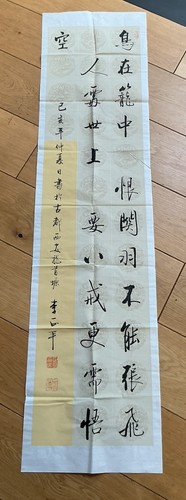 鳥在籠中恨関羽不能張飛
人處世上要八戒更需悟
空
己亥年仲夏日書於古都西安
李正平